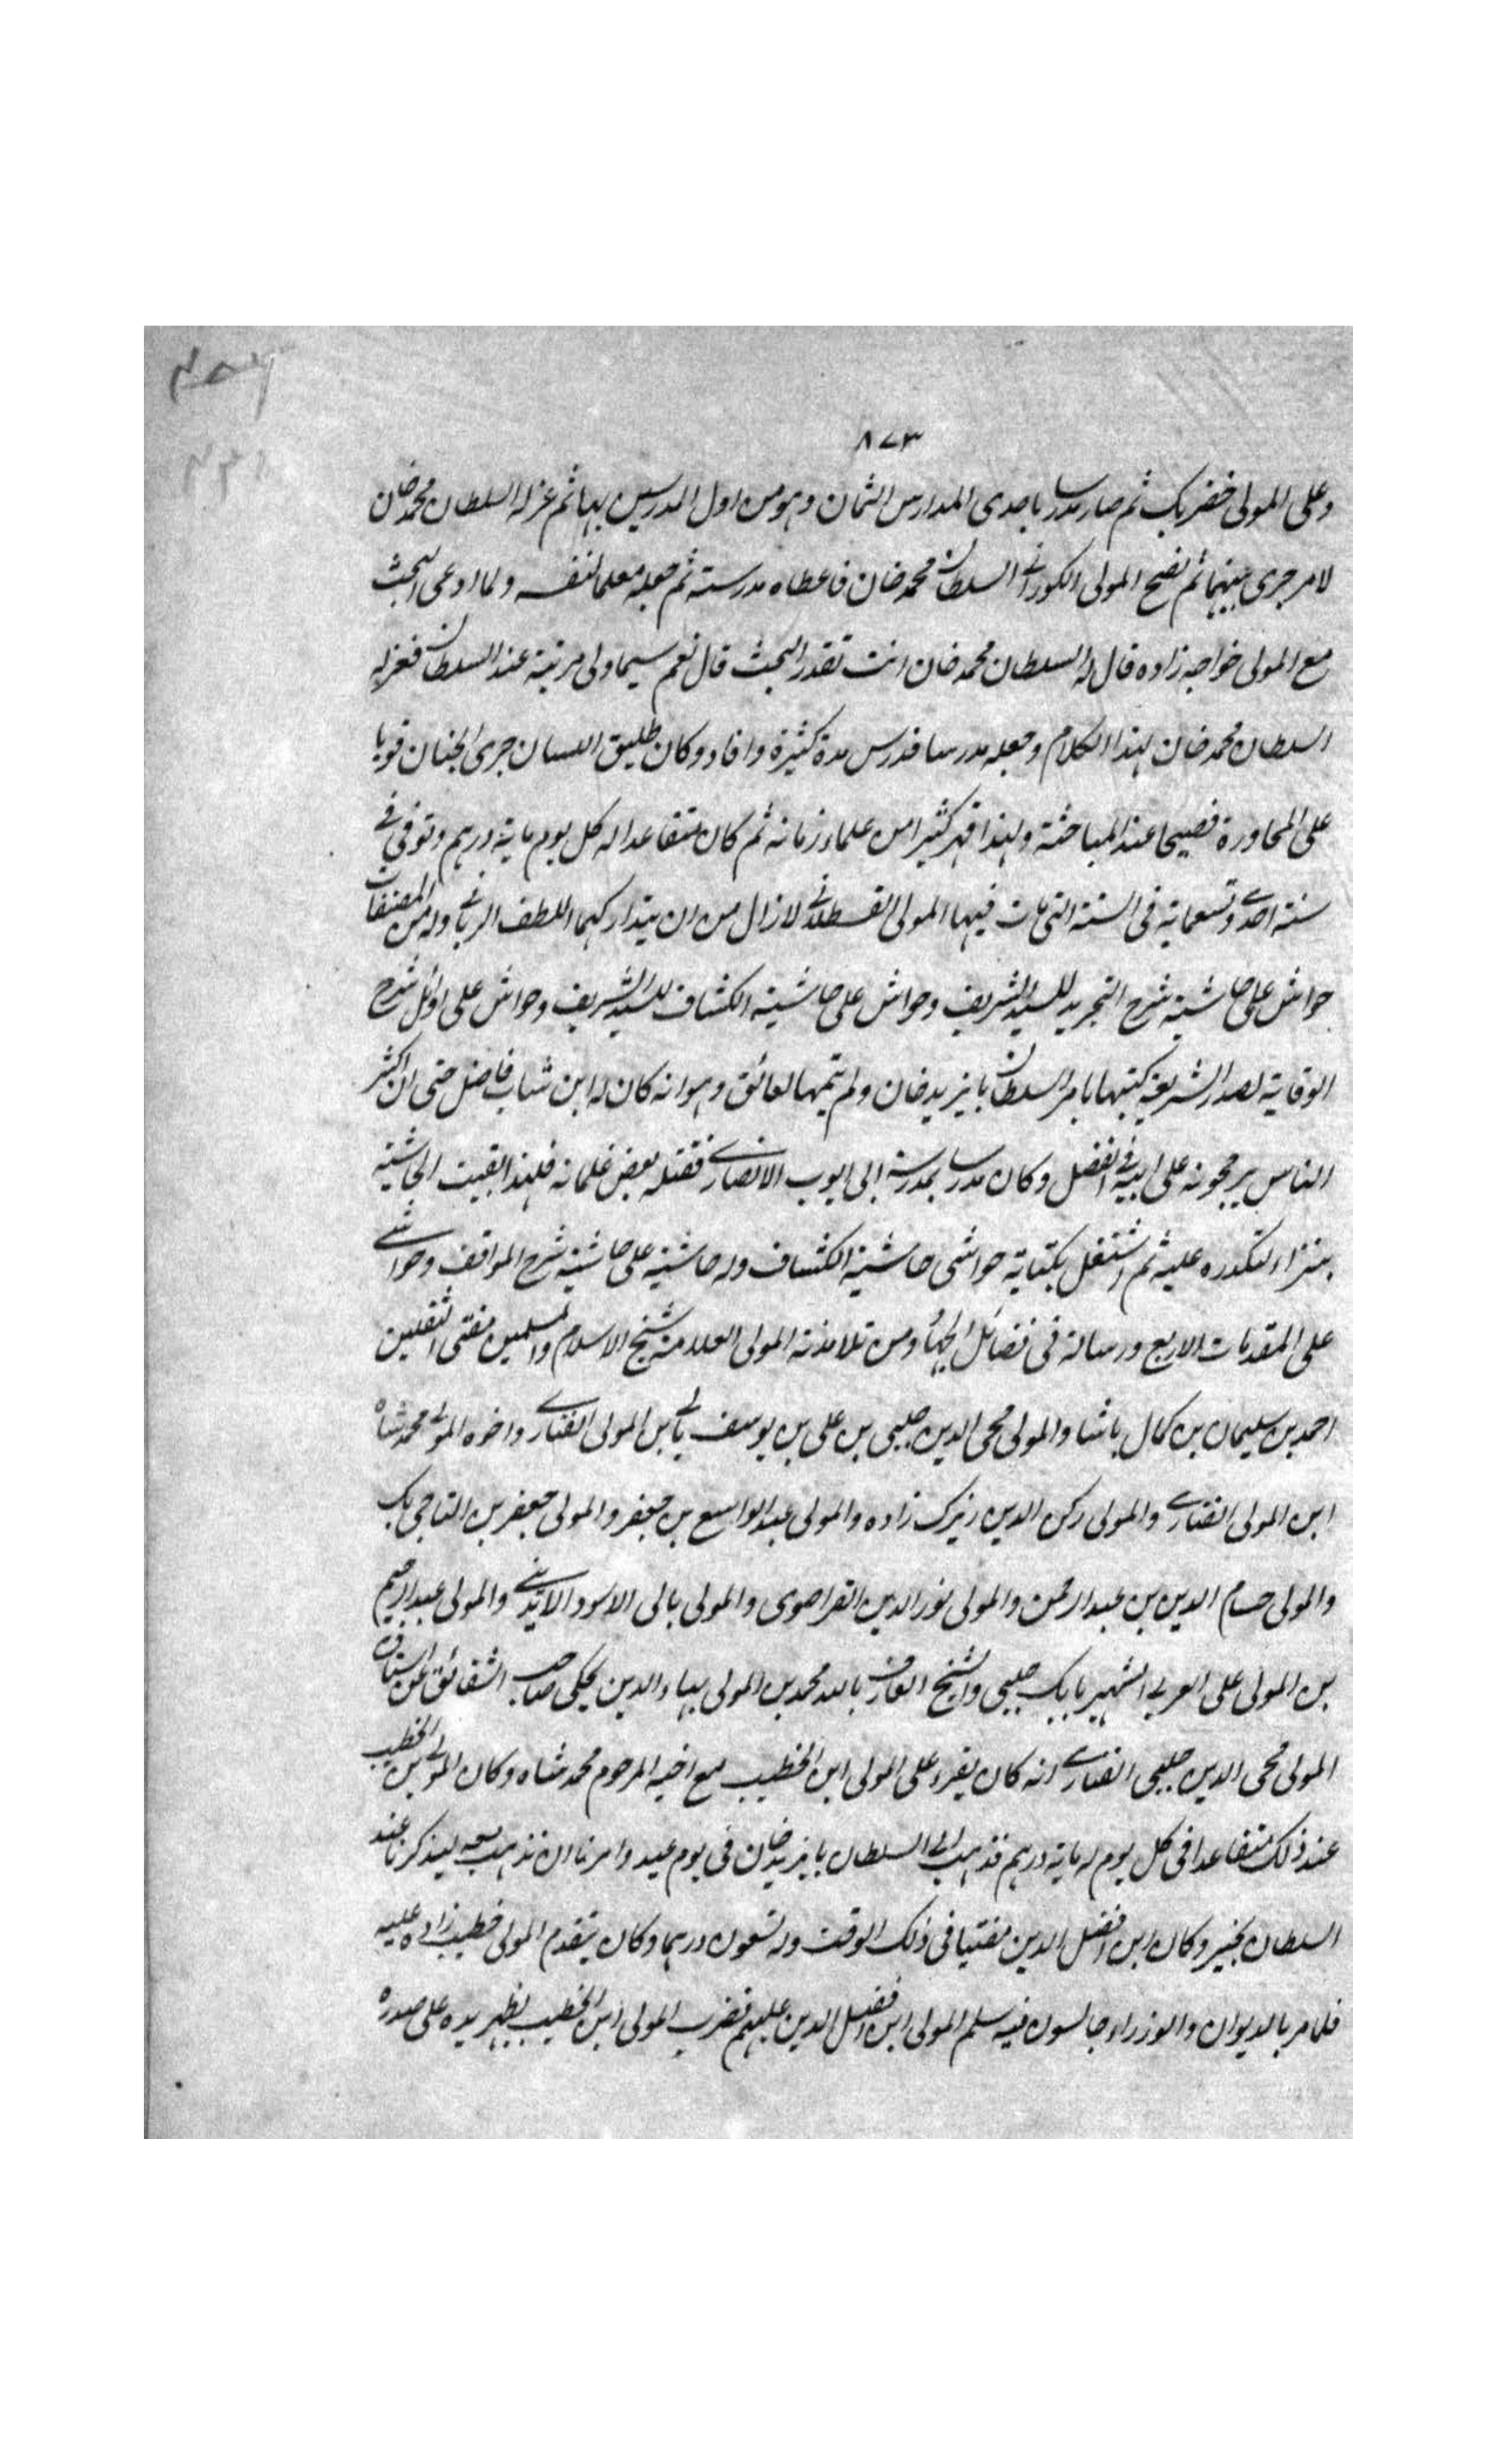 ٨٧٣
وعلى المولى خضر بك ثم صار مدرسا باحدى المدارس الثمان وهو من اول المدرسين بها ثم عزله السلطان محمد خان
لامر جرى بينهما ثم نصح المولى الكورانى السلطان محمد خان فاعطاه مدرسته ثم جعله معلما لنفسه ولما ادعى البحث
مع المولى خواجه زاده قال له السلطان محمد خان انت تقدر البحث قال نعم سيما ولى مرتبة عند السلطان فعزله
السلطان محمد خان لهذا الكلام وجعله مدرسا فدرس مدة كثيرة وافاد وكان طليق اللسان جرى الجنان قويا
على المحاورة فصيحا عند المباحثة ولهذا قهر كثيرا من علماء زمانه ثم كان متقاعدا له كل يوم ماية درهم وتوفى فى
سنة احدى وتسعماية فى السنة التى مات فيها المولى القسطلانى لازال من ان يتداركهما اللطف الربانى وله من المصنفات
حواش على حاشية شرح التجريد للسيد الشريف وحواش على حاشية الكشاف للسيد الشريف وحواش على اوائل شرح
الوقاية لصدر الشريعة كتبها بامر السلطان بايزيد خان ولم يتمها لعائق وهو انه كان له ابن شاب فاضل حتى ان اكثر
الناس يرجحونه على ابيه فى الفضل وكان مدرسا بمدرسة ابى ايوب الانصارى فقتله بعض غلمانه فلهذا بقيت الحاشية
بتراء لتكدره عليه ثم اشتغل بكتابة حواشى حاشية الكشاف وله حاشية على حاشية شرح المواقف وحواشى
على المقدمات الاربع ورسالة فى فضائل الجهاد ومن تلامذته المولى العلامة شيخ الاسلام والمسلمين مفتى الثقلين
احمد بن سليمان بن كمال باشا والمولى محى الدين چلبى بن على بن يوسف بالى بن المولى الفنارى واخوه المولى محمد شاه
ابن المولى الفنارى والمولى ركن الدين زيرك زاده والمولى عبد الواسع بن جعفر والمولى جعفر بن التاجى بك
والمولى حسام الدين بن عبد الرحمن والمولى نور الدين القراصوى والمولى بالى الاسود الايدينى والمولى عبد الرحيم
بن المولى على العربى الشهير ببابك چلبى والشيخ العارف بالله محمد بن المولى بهاء الدين يحكى صاحب الشقائق عن استاذه
المولى محى الدين چلبى الفنارى انه كان يقرء على المولى ابن الخطيب مع اخيه المرحوم محمد شاه وكان المولى بن الخطيب
عند ذلك متقاعدا فى كل يوم له ماية درهم فذهب الى السلطان بايزيد خان فى يوم عيد وامرنا ان نذهب معه ليذكرنا عند
السلطان بخير وكان ابن افضل الدين مفتيا فى ذلك الوقت وله تسعون درهما وكان يتقدم المولى خطيب زاده عليه
فلما مر بالديوان والوزراء جالسون فيه سلم المولى ابن افضل الدين عليهم فضرب المولى ابن الخطيب بظهر يده على صدره